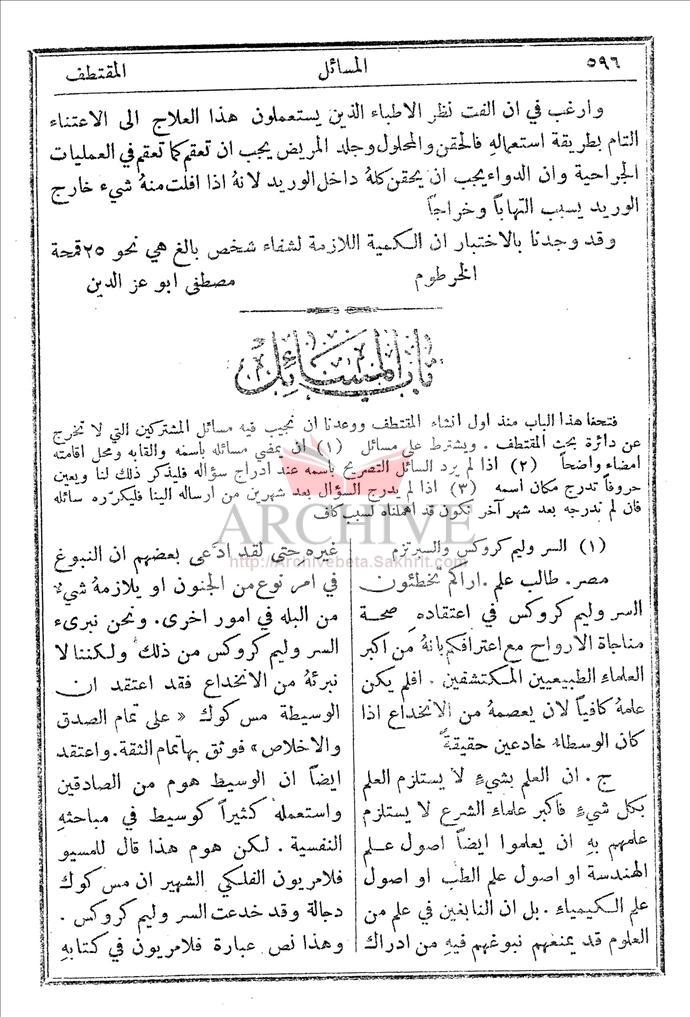 ٥٩٦ المسائل المقتطف
وارغب في ان الفت نظر الاطباء الذين يستعملون هذا العلاج الى الاعتناء
التام بطريقة استعمالهِ فالحقن والمحلول وجلد المريض يجب ان تعقم كما تعقم في العمليات
الجراحية وان الدواء يجب ان يحقن كلهُ داخل الوريد لانهُ اذا افلت منهُ شيء خارج
الوريد يسبب التهاباً وخراجاً
وقد وجدنا بالاختبار ان الكمية اللازمة لشفاء شخص بالغ هي نحو ٢٥ قمحة
الخرطوم مصطفى ابو عز الدين
باب المسائل
فتحنا هذا الباب منذ اول انشاء المقتطف ووعدنا ان نجيب فيه مسائل المشتركين التي لا تخرج
عن دائرة بحث المقتطف . ويشترط على مسائل (١) ان يمضي مسائله باسمه والقابه ومحل اقامته
امضاء واضحاً (٢) اذا لم يرد السائل التصريح باسمه عند ادراج سؤاله فليذكر ذلك لنا ويعين
حروفاً تدرج مكان اسمه (٣) اذا لم يدرج السؤال بعد شهرين من ارساله الينا فليكرّره سائله
فان لم ندرجه بعد شهر آخر نكون قد اهملناه لسبب كاف
ARCHIVE
http://Archivebeta.Sakhrit.com
(١) السر وليم كروكس والسبرتزم
مصر . طالب علم . اراكم تخطئون
السر وليم كروكس في اعتقاده صحة
مناجاة الارواح مع اعترافكم بانهُ من اكبر
العلماء الطبيعيين المكتشفين . افلم يكن
علمهُ كافياً لان يعصمهُ من الانخداع اذا
كان الوسطاء خادعين حقيقةً
ج . ان العلم بشيءٍ لا يستلزم العلم
بكل شيءٍ فاكبر علماء الشرع لا يستلزم
علمهم بهِ ان يعلموا ايضاً اصول علم
الهندسة او اصول علم الطب او اصول
علم الكيمياء . بل ان النابغين في علم من
العلوم قد يمنعهم نبوغهم فيهِ من ادراك
غيره حتى لقد ادّعى بعضهم ان النبوغ
في امر نوع من الجنون او يلازمهُ شيءٌ
من البله في امور اخرى . ونحن نبرىء
السر وليم كروكس من ذلك ولكننا لا
نبرئهُ من الانخداع فقد اعتقد ان
الوسيطة مس كوك « على تمام الصدق
والاخلاص » فوثق بها تمام الثقة . واعتقد
ايضاً ان الوسيط هوم من الصادقين
واستعملهُ كثيراً كوسيط في مباحثهِ
النفسية . لكن هوم هذا قال للمسيو
فلامريون الفلكي الشهير ان مس كوك
دجالة وقد خدعت السر وليم كروكس .
وهذا نص عبارة فلامريون في كتابهِ